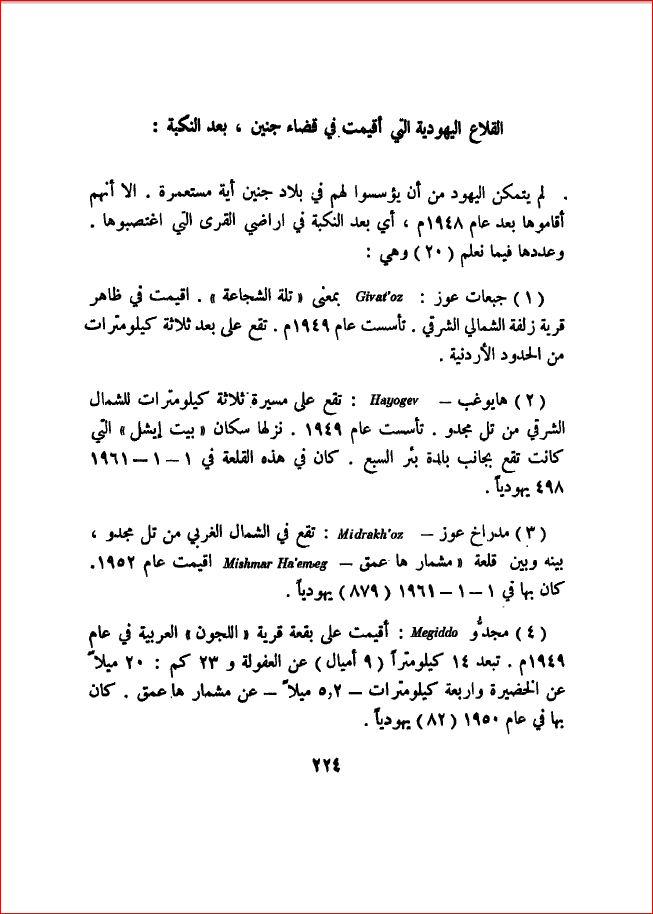 القلاع اليهودية التي أقيمت في قضاء جنين ، بعد النكبة :
. لم يتمكن اليهود من أن يؤسسوا لهم في بلاد جنين أية مستعمرة . الا أنهم
أقاموها بعد عام ١٩٤٨م ، أي بعد النكبة في اراضي القرى التي اغتصبوها .
وعددها فيما نعلم ( ٢٠ ) وهي :
( ١ ) جبعات عوز : Givat'oz بمعنى « تلة الشجاعة » . اقيمت في ظاهر
قرية زلفة الشمالي الشرقي . تأسست عام ١٩٤٩م . تقع على بعد ثلاثة كيلومترات
من الحدود الأردنية .
( ٢ ) هايوغب – Hayogev : تقع على مسيرة ثلاثة كيلومترات للشمال
الشرقي من تل مجدو . تأسست عام ١٩٤٩ . نزلها سكان « بيت إيشل » التي
كانت تقع بجانب بلدة بئر السبع . كان في هذه القلعة في ١ – ١ – ١٩٦١
٤٩٨ يهودياً .
( ٣ ) مدراخ عوز – Midrakh'oz : تقع في الشمال الغربي من تل مجدو ،
بينه وبين قلعة « مشمار ها عمق – Mishmar Ha'emeg اقيمت عام ١٩٥٢.
كان بها في ١ – ١ – ١٩٦١ ( ٨٧٩ ) يهودياً .
( ٤ ) مجدُّو Megiddo : أقيمت على بقعة قرية « اللجون » العربية في عام
١٩٤٩م . تبعد ١٤ كيلومتراً ( ٩ أميال ) عن العفولة و ٢٣ كم : ٢٠ ميلاً
عن الخضيرة واربعة كيلومترات – ٥,٢ ميلاً – عن مشمار ها عمق . كان
بها في عام ١٩٥٠ ( ٨٢ ) يهودياً .
٢٢٤